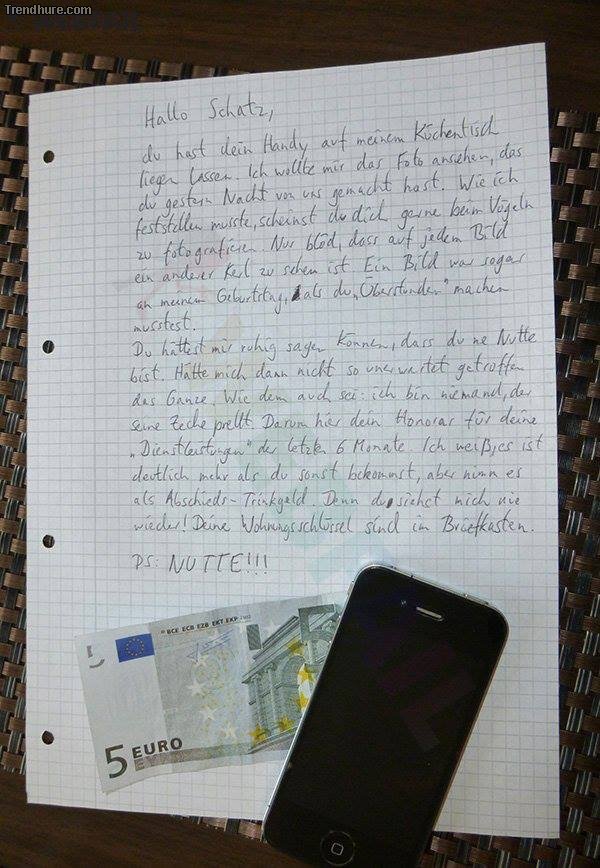 Trendhure.com
Hallo Schatz,
du hast dein Handy auf meinem Küchentisch
liegen lassen. Ich wollte mir das Foto ansehen, das
du gestern Nacht von uns gemacht hast. Wie ich
feststellen musste, scheinst du dich gerne beim Vögeln
zu fotografieren. Nur blöd, dass auf jedem Bild
ein anderer Kerl zu sehen ist. Ein Bild war sogar
an meinem Geburtstag, als du „Überstunden" machen
musstest.
Du hättest mir ruhig sagen können, dass du ne Nutte
bist. Hätte mich dann nicht so unerwartet getroffen
das Ganze. Wie dem auch sei: ich bin niemand, der
seine Zeche prellt. Darum hier dein Honorar für deine
„Dienstleistungen" der letzten 6 Monate. Ich weiß, es ist
deutlich mehr als du sonst bekommst, aber nimm es
als Abschieds-Trinkgeld. Denn du siehst mich nie
wieder! Deine Wohnungsschlüssel sind im Briefkasten.
PS: NUTTE!!!
BCE ECB EZB EKT EKP 2002
5
5 EURO
ΕΥΡΩ